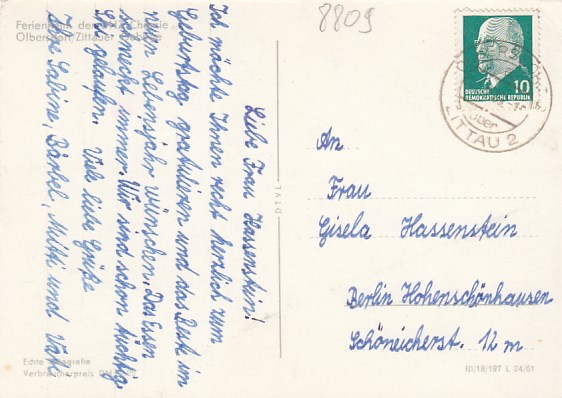 8809
Ferienheim der IG Chemie
Olbersdorf/Zittauer Gebirge
Liebe Frau Hassenstein!
Ich möchte Ihnen recht herzlich zum
Geburtstag gratulieren und das Beste im
neuen Lebensjahr wünschen. Das Essen
schmeckt immer. Wir sind schon tüchtig
Ski gelaufen. Viele liebe Grüße
Ihre Sabine, Bärbel, Mutti und Vati
Echte Fotografie
Verbraucherpreis DM
DTVL
DEUTSCHE
DEMOKRATISCHE REPUBLIK
10
über
ZITTAU 2
An
Frau
Gisela Hassenstein
Berlin Hohenschönhausen
Schöneicherst. 12 m
III/18/197 L 24/61